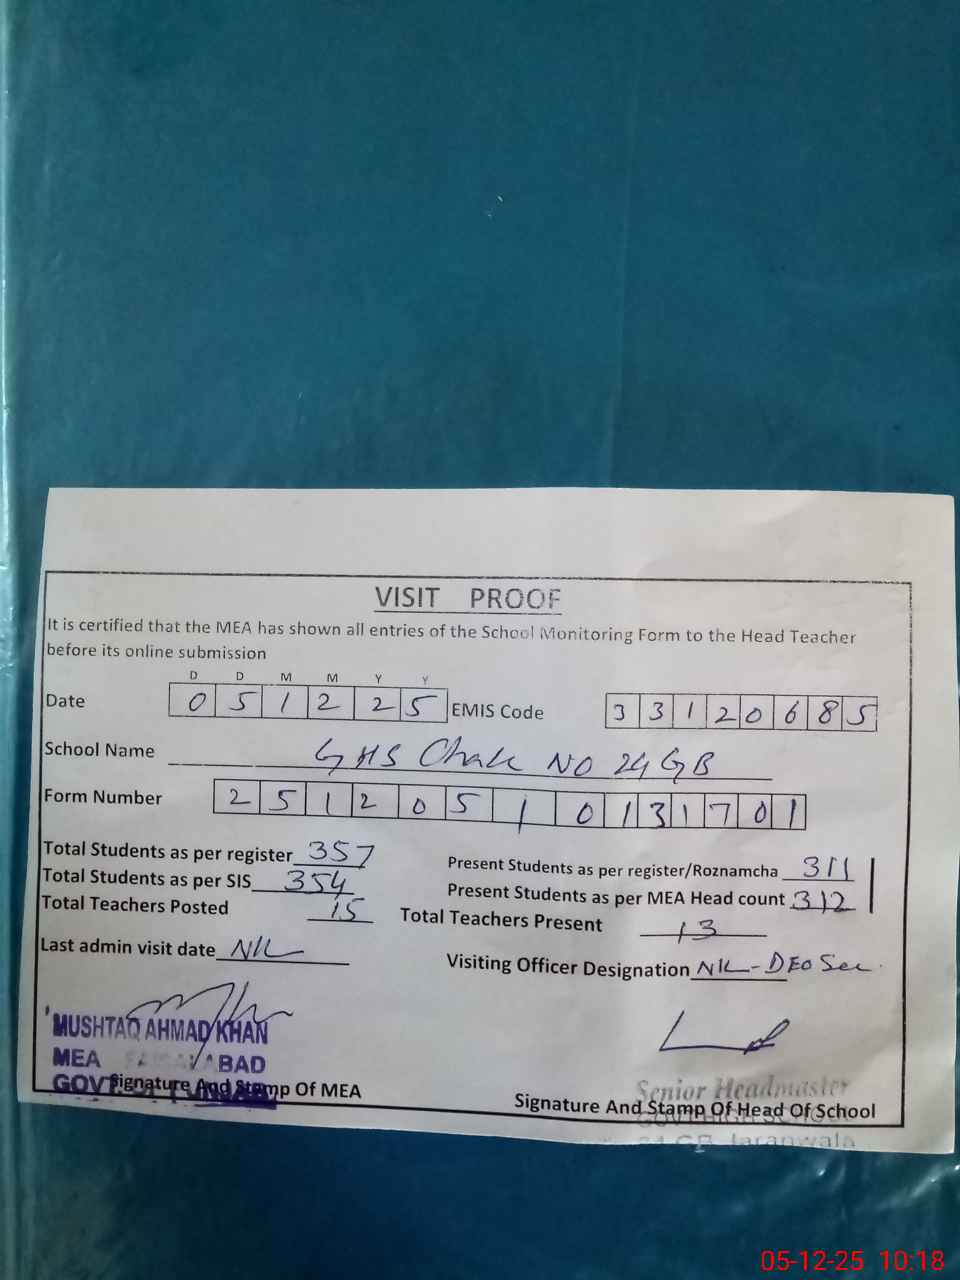 VISIT PROOF
It is certified that the MEA has shown all entries of the School Monitoring Form to the Head Teacher
before its online submission
D D M M Y Y
Date 0 5 1 2 2 5 EMIS Code 3 3 1 2 0 6 8 5
School Name GHS Chak NO 24 GB
Form Number 2 5 1 2 0 5 1 0 1 3 1 7 0 1
Total Students as per register 357 Present Students as per register/Roznamcha 311
Total Students as per SIS 354 Present Students as per MEA Head count 312
Total Teachers Posted 15 Total Teachers Present 13
Last admin visit date NIL Visiting Officer Designation NIL - DEO Sec.
MUSHTAQ AHMAD KHAN
MEA FAISALABAD
GOVT. OF PUNJAB
Signature And Stamp Of MEA
Senior Headmaster
Signature And Stamp Of Head Of School
GOVT HIGH SCHOOL
24 GB Jaranwala
05-12-25 10:18